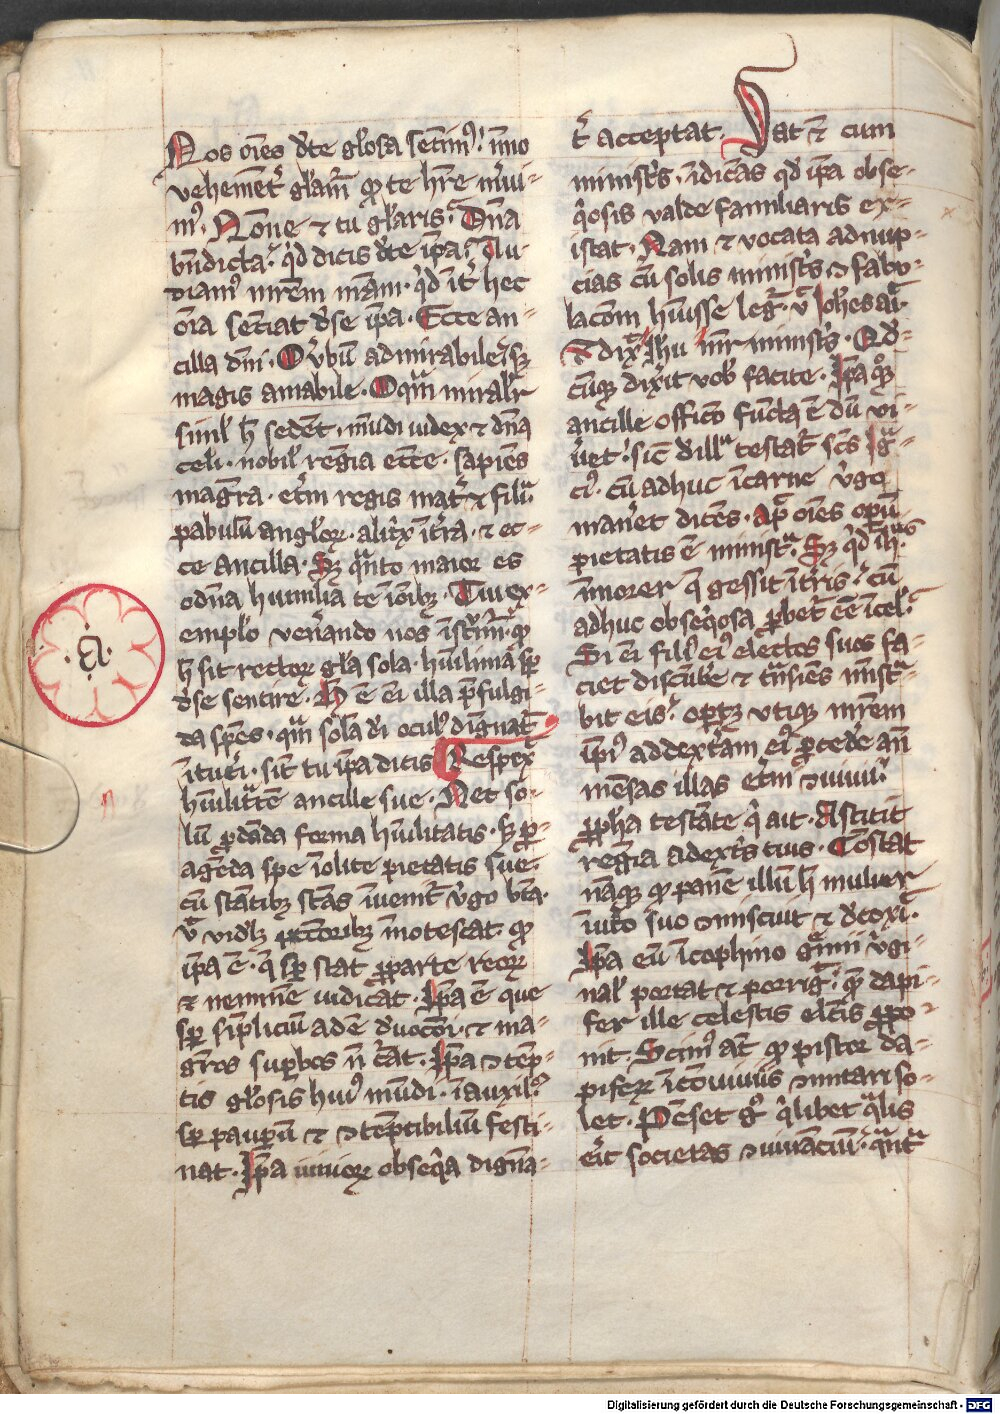 Nos om̄es d̄te gl'osa sentim9. immo
vehemēt' gl'am̄ ꝓ te h're m'ui-
m9. Nōne ⁊ tu gl'aris. Dn̄a
bn̄dicta. q'd dicis d'te ip̄a. Au
diam9 mr̄em nr̄am. q'd īt' hec
om̄ia senciat d'se ip̄a. Ecce an-
cilla dn̄i. O v'bū admirabile. sꝫ
magis amabile. O qm̄ mirabl'r
simil' h̄ sedēt. mūdi iudex ⁊ dn̄a
celi. nobil' regīa ecce. sapiēs
maḡra. et'ni regis mat' ⁊ filia.
pabulū angl'oꝝ. alit'x īt'ra. ⁊ ec-
ce ancilla. Sꝫ q̄nto maior es
o dn̄a humilia te ī oībꝫ. Tu ex-
emplo ven'ando nos
h̄ sit rectoꝝ gl'a sola. huīlima sp̄
d'se sentire. H̄ ē ei illa p̄fulgi-
da sp̄es. qm̄ sola d'i ocul9 dignat'
ītu'i. sic̄ tu ip̄a dicis Respex'
hūilitatē ancille sue. Nec so-
lū ꝓdāda forma hūilitatis. sꝫ ꝑ-
agēda spe īolite pietatis sue.
cū stātibꝫ stās īuenit' v'go bt̄a.
ip̄a ē. q̄ sp̄ stat ꝓparte reoꝝ
⁊ neminē iudicat. Ip̄a ē que
sp̄ simpliciū adē d'uoc̄oi. ⁊ ma-
gros suꝑbos n̄ t̄cat. Ip̄a ↄtēp-
tis gl'osis hui9 mūdi. ī auxil'
sp̄ pauꝑū ⁊ ↄtēptibiliū festi-
nat. Ip̄a iunioꝝ obseq'a digna-
t' acceptat. Stat ē cum
minist'is. īdicās qd' ip̄a obse-
q'osis valde familiaris ex-
istat. Nam ⁊ vocata ad nup-
cias cū solis minist'is ↄfabu-
lac̄om huīsse leg'. v' Ioh'es ait.
⁊ dix' Ih'u mr̄ minist'is. Qd'-
cūqꝫ dix'it vob' facite. Ip̄a qꝫ
ancille offico fūcta ē dū vi-
u'et. sic̄ d'illa testat' scs Ig-
ci9. cū adhuc ī carne v'go
man'et dicēs. ap̄ om̄es opū
pietatis ē ministra. Sꝫ q'd ī hiis
īmorer q̄ gessit ī t'ris. cū
adhuc obseq'osa ꝓbet' ēē ī cel'.
Si ei fili9 ei9 electos suos fa-
ciet discūb'e ⁊ trāsiēs mīstra-
bit eis. oportꝫ vtiqꝫ mr̄em
ip̄i9 addextram ei9 ꝓced'e an̄
mēsas illas et'ni ↄuiuii.
ꝓph'a testāte q' ait. Astitit
regīa adext'is tuis. Constat
nāqꝫ ꝙ panē illū h̄ mulier
ī vt'o suo ↄmiscuit ⁊ decoxit.
Ip̄a eū ī cophino gremii v'gi-
nal' portat ⁊ porrig'. quē dapi-
fer ille celestis elc̄tis ꝓpo-
nit. Scim9 aūt ꝙ pistor da-
piferꝫ ī ↄuiuiis ↄmitari so-
let. Pēset g° q'libet q̄lis
erit societas ↄuiuāciū. q̄nta
.a.
Digitalisierung gefördert durch die Deutsche Forschungsgemeinschaft - DFG